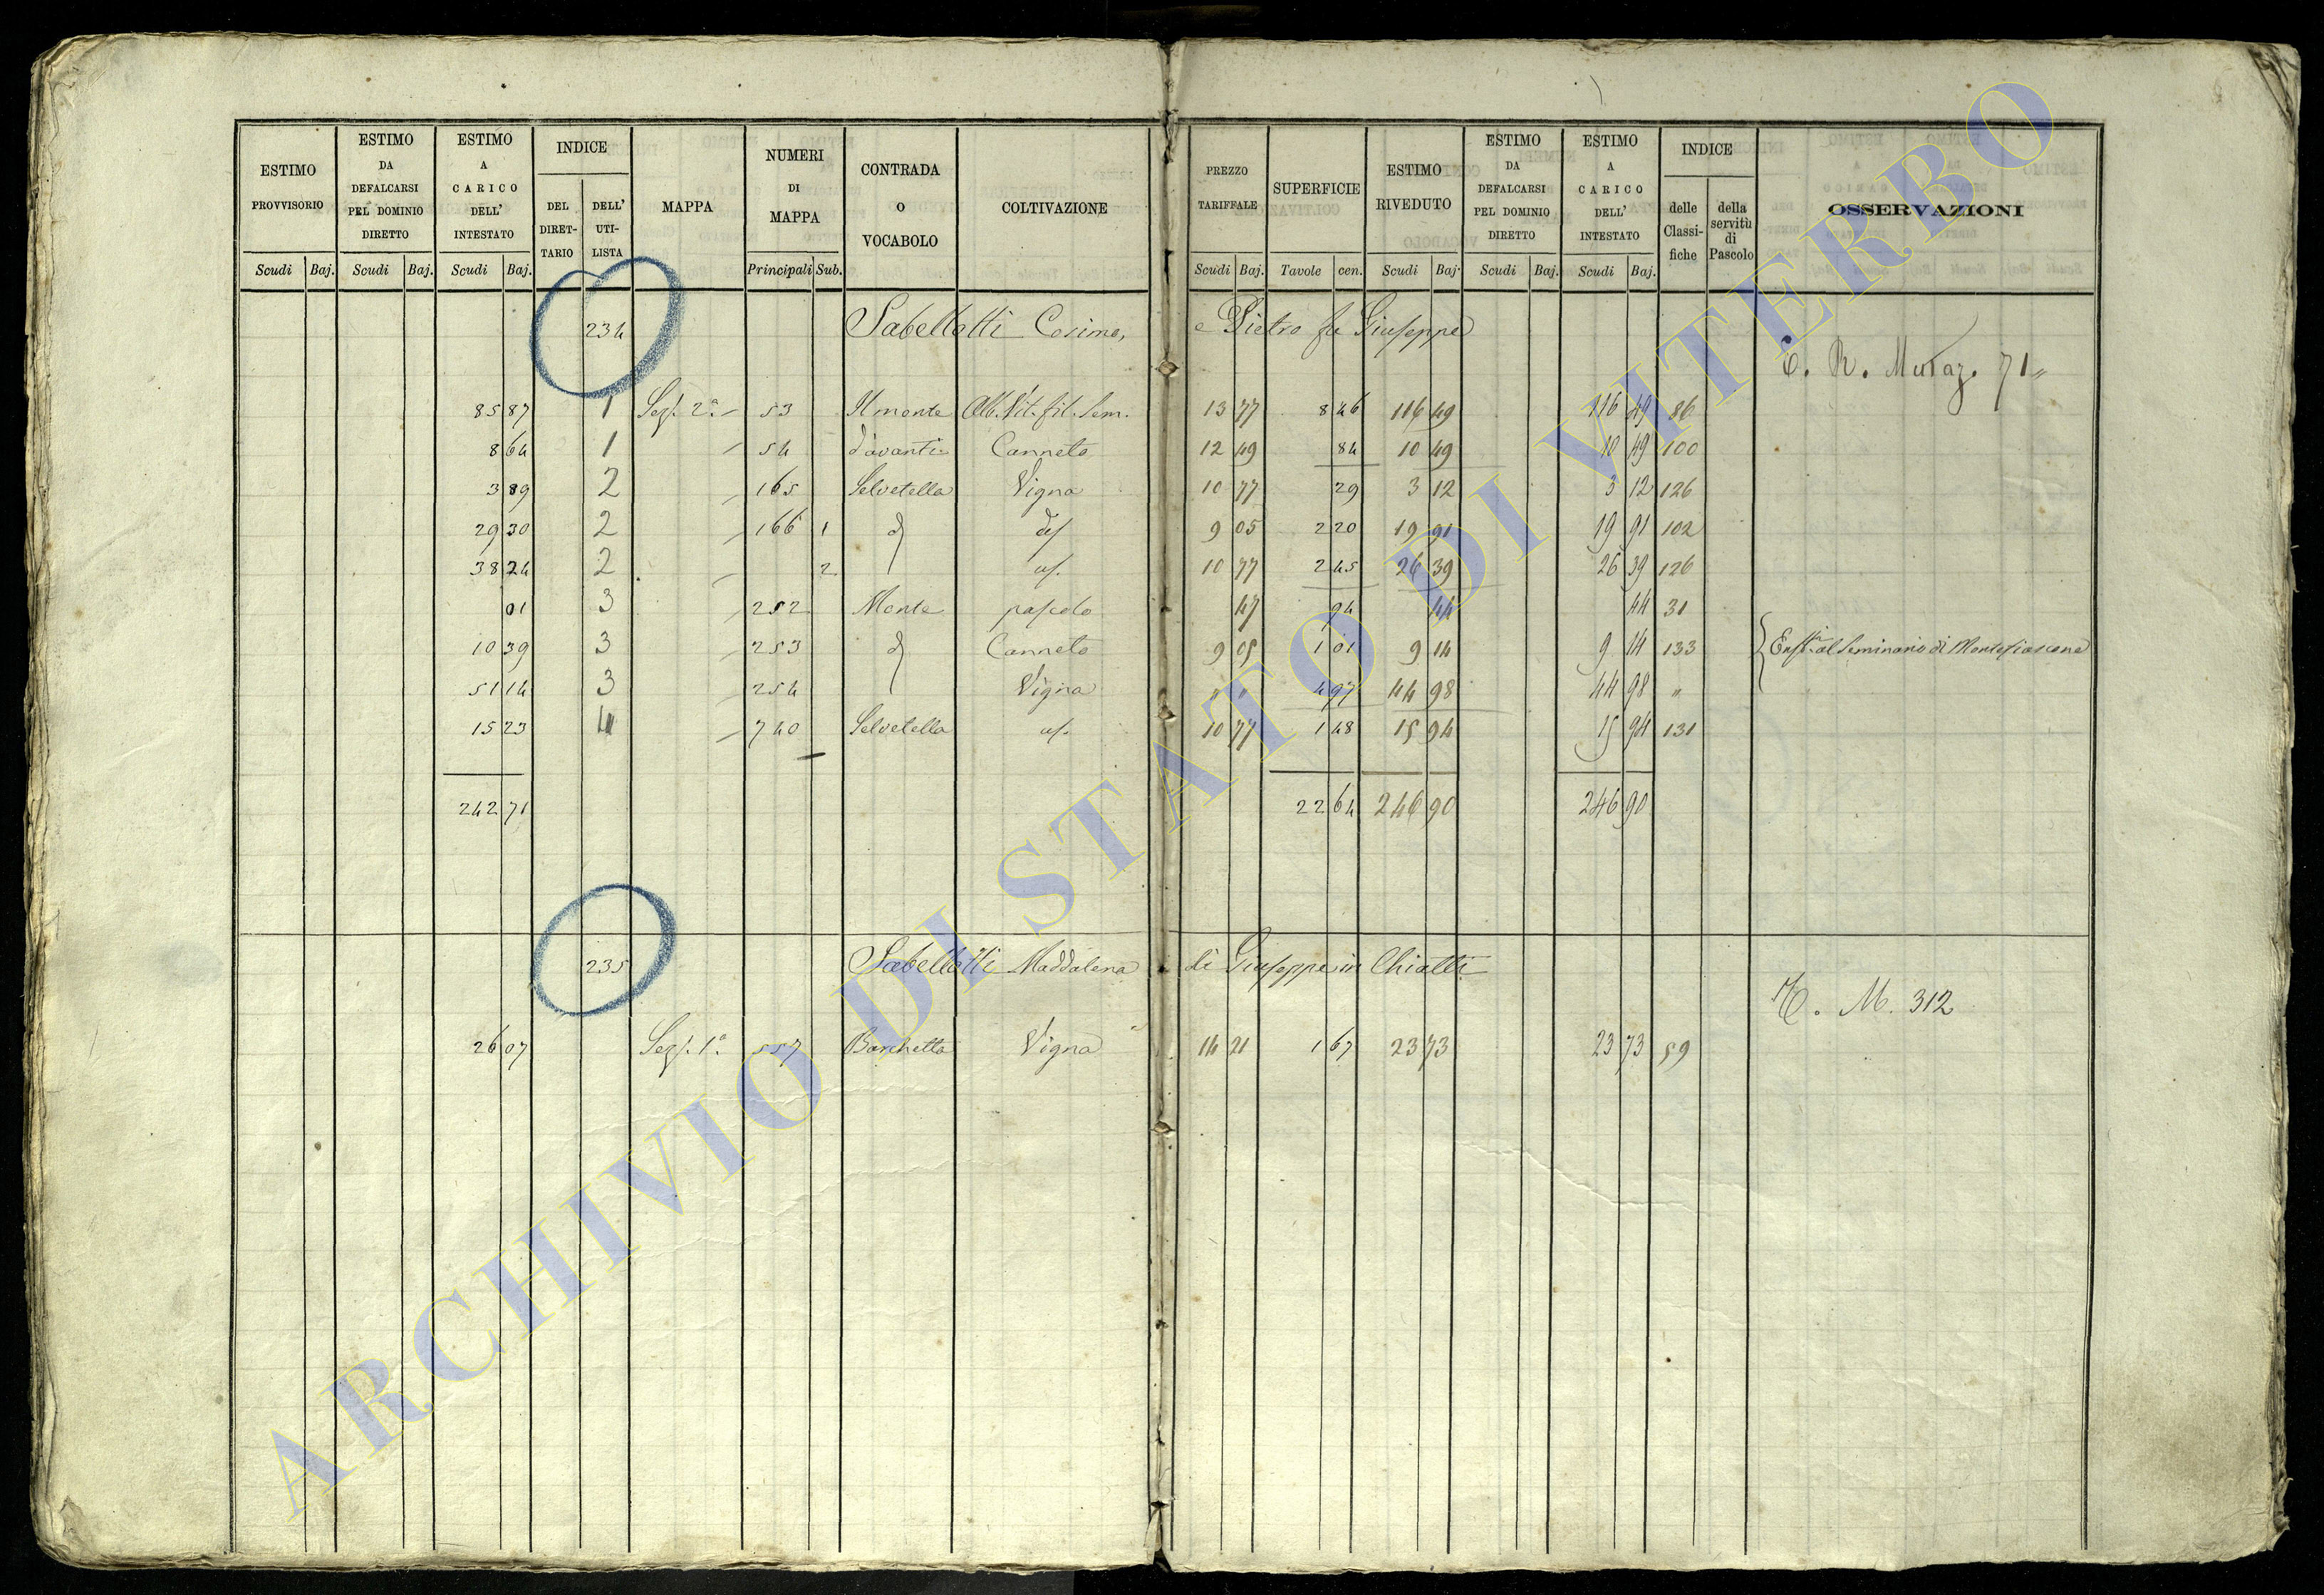 ESTIMO PROVVISORIO | ESTIMO DA DEFALCARSI PEL DOMINIO DIRETTO | ESTIMO A CARICO DELL' INTESTATO | INDICE DEL DIRET-TARIO | DELL' UTI-LISTA | MAPPA | NUMERI DI MAPPA | CONTRADA O VOCABOLO | COLTIVAZIONE | PREZZO TARIFFALE | SUPERFICIE | ESTIMO RIVEDUTO | ESTIMO DA DEFALCARSI PEL DOMINIO DIRETTO | ESTIMO A CARICO DELL' INTESTATO | INDICE delle Classi-fiche | della servitù di Pascolo | OSSERVAZIONI
Scudi Baj. Scudi Baj. Scudi Baj. Principali Sub. Scudi Baj. Tavole cen. Scudi Baj. Scudi Baj. Scudi Baj.
234 Sabellotti Cosimo, e Pietro fu Giuseppe
71
85 87 1 Sez. 2a 53 Il monte Alb. Vit. fil. Sem. 13 77 8 46 116 49 116 49 86
8 64 1 54 d'avanti Canneto 12 49 84 10 49 10 49 100
3 89 2 165 Selvetella Vigna 10 77 29 3 12 3 12 126
29 30 2 166 1 9 05 2 20 19 91 19 91 102
38 24 2 2 10 77 2 45 26 39 26 39 126
01 3 252 Monte pascolo 47 94 44 44 31
10 39 3 253 Canneto 9 05 1 01 9 14 9 14 133 al Seminario di Montefiascone
51 14 3 254 Vigna " " 4 97 44 98 44 98 "
15 23 4 740 Selvetella 10 77 1 48 15 94 15 94 131
242 71 22 64 246 90 246 90
235 Sabellotti Maddalena di Giuseppe in Chiatti
M. 312
26 07 Sez. 1a 557 Barchetta Vigna 14 21 1 67 23 73 23 73 59
ARCHIVIO DI STATO DI VITERBO